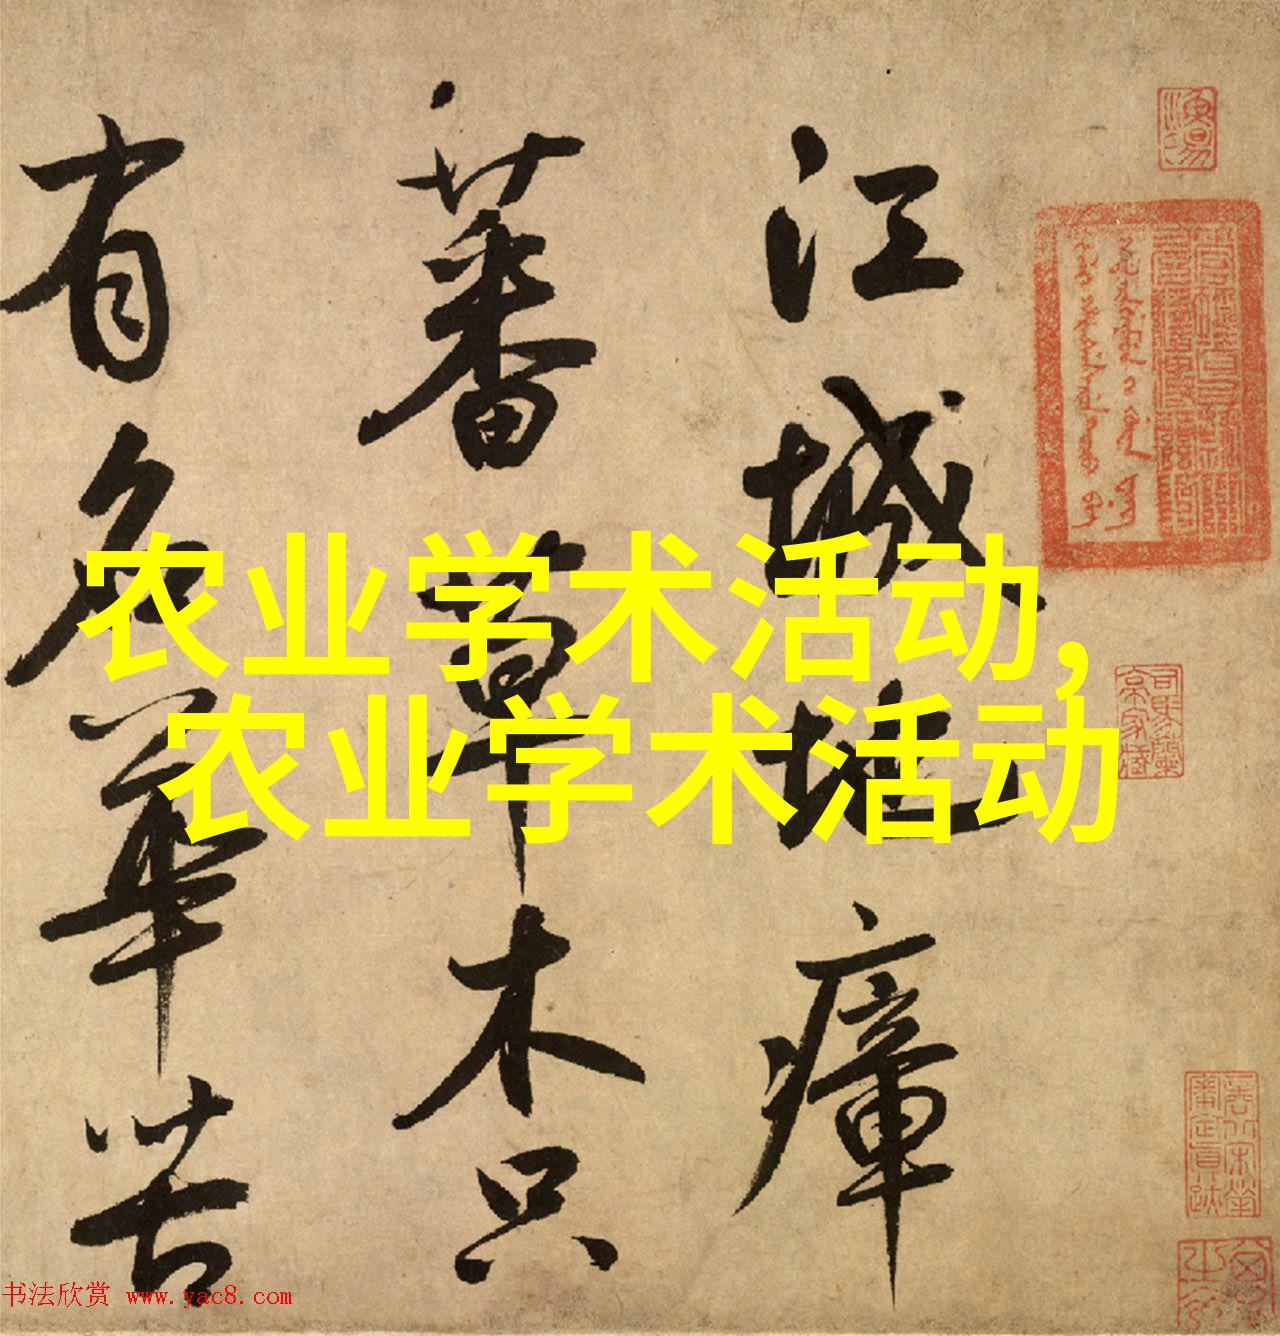 农业学术活动,
农业学术活动
江城地瘴
蕃草木只
有名華苦
书法欣赏 www.yac8.com